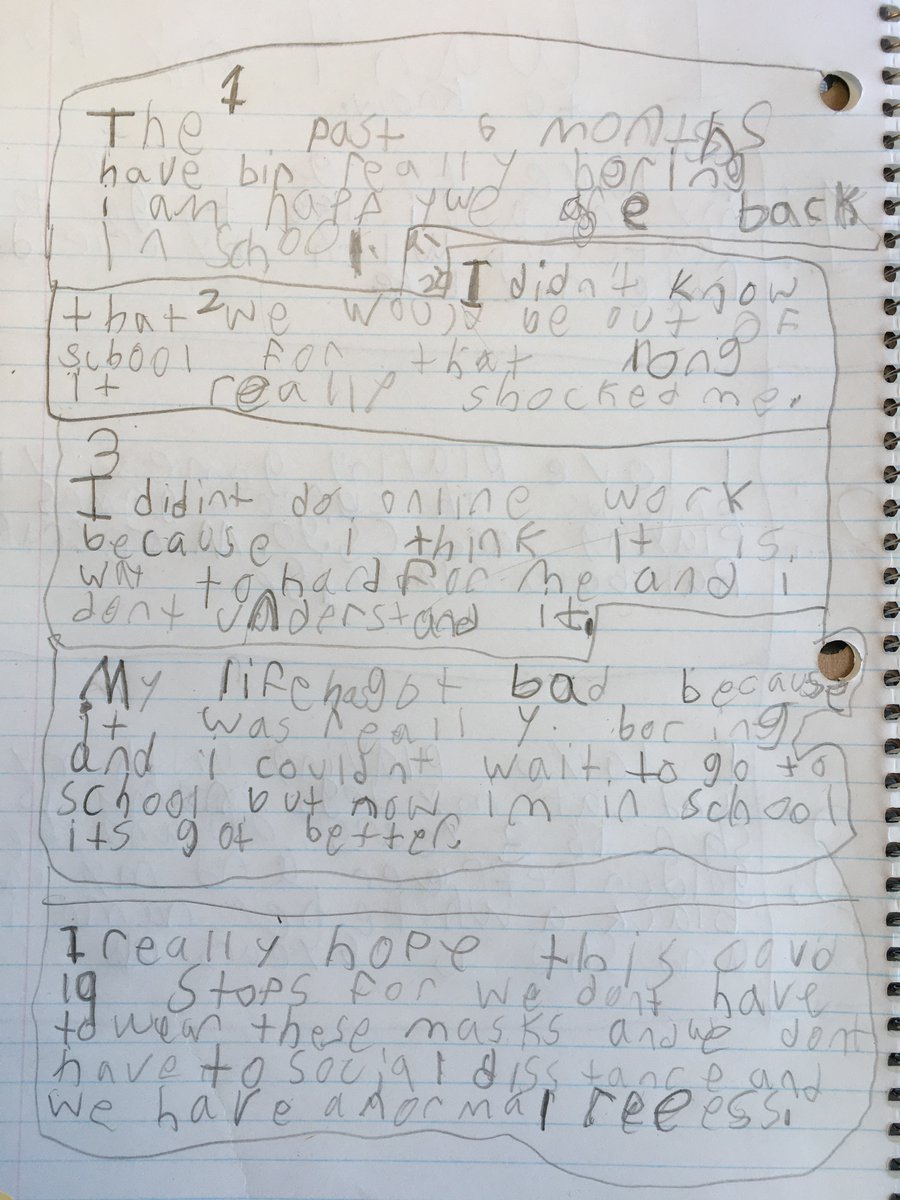 1
The past 6 months
have bin really boring
i am happ ywe are back
in school.
I didn't know
that 2 we would be out of
school for that long
it really shocked me.
3
I didint do online work
because i think it is.
way to hard for me and i
dont understand it.
My life has got bad because
it was really. boring
and i couldnt wait. to go to
school but now im in school
its got better.
I really hope this covd
19 stops for we dont have
to wear these masks and we dont
have to social disstance and
we have a normal reeess.